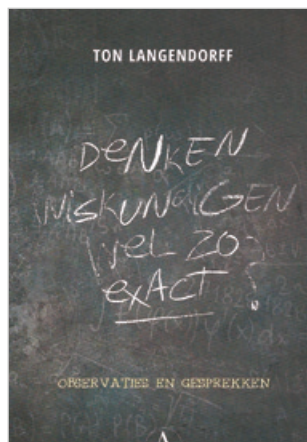 TON LANGENDORFF
DENKEN
WISKUNDIGEN
WEL ZO
EXACT?
OBSERVATIES EN GESPREKKEN